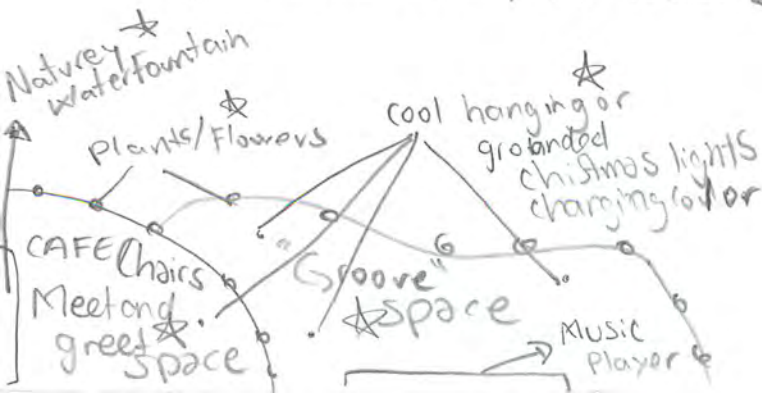 Naturey
Waterfountain
Plants/Flowers
cool hanging or
grounded
chistmas lights
changing color
CAFE Chairs
Meet and
greet
space
"Groove"
space
Music
Player